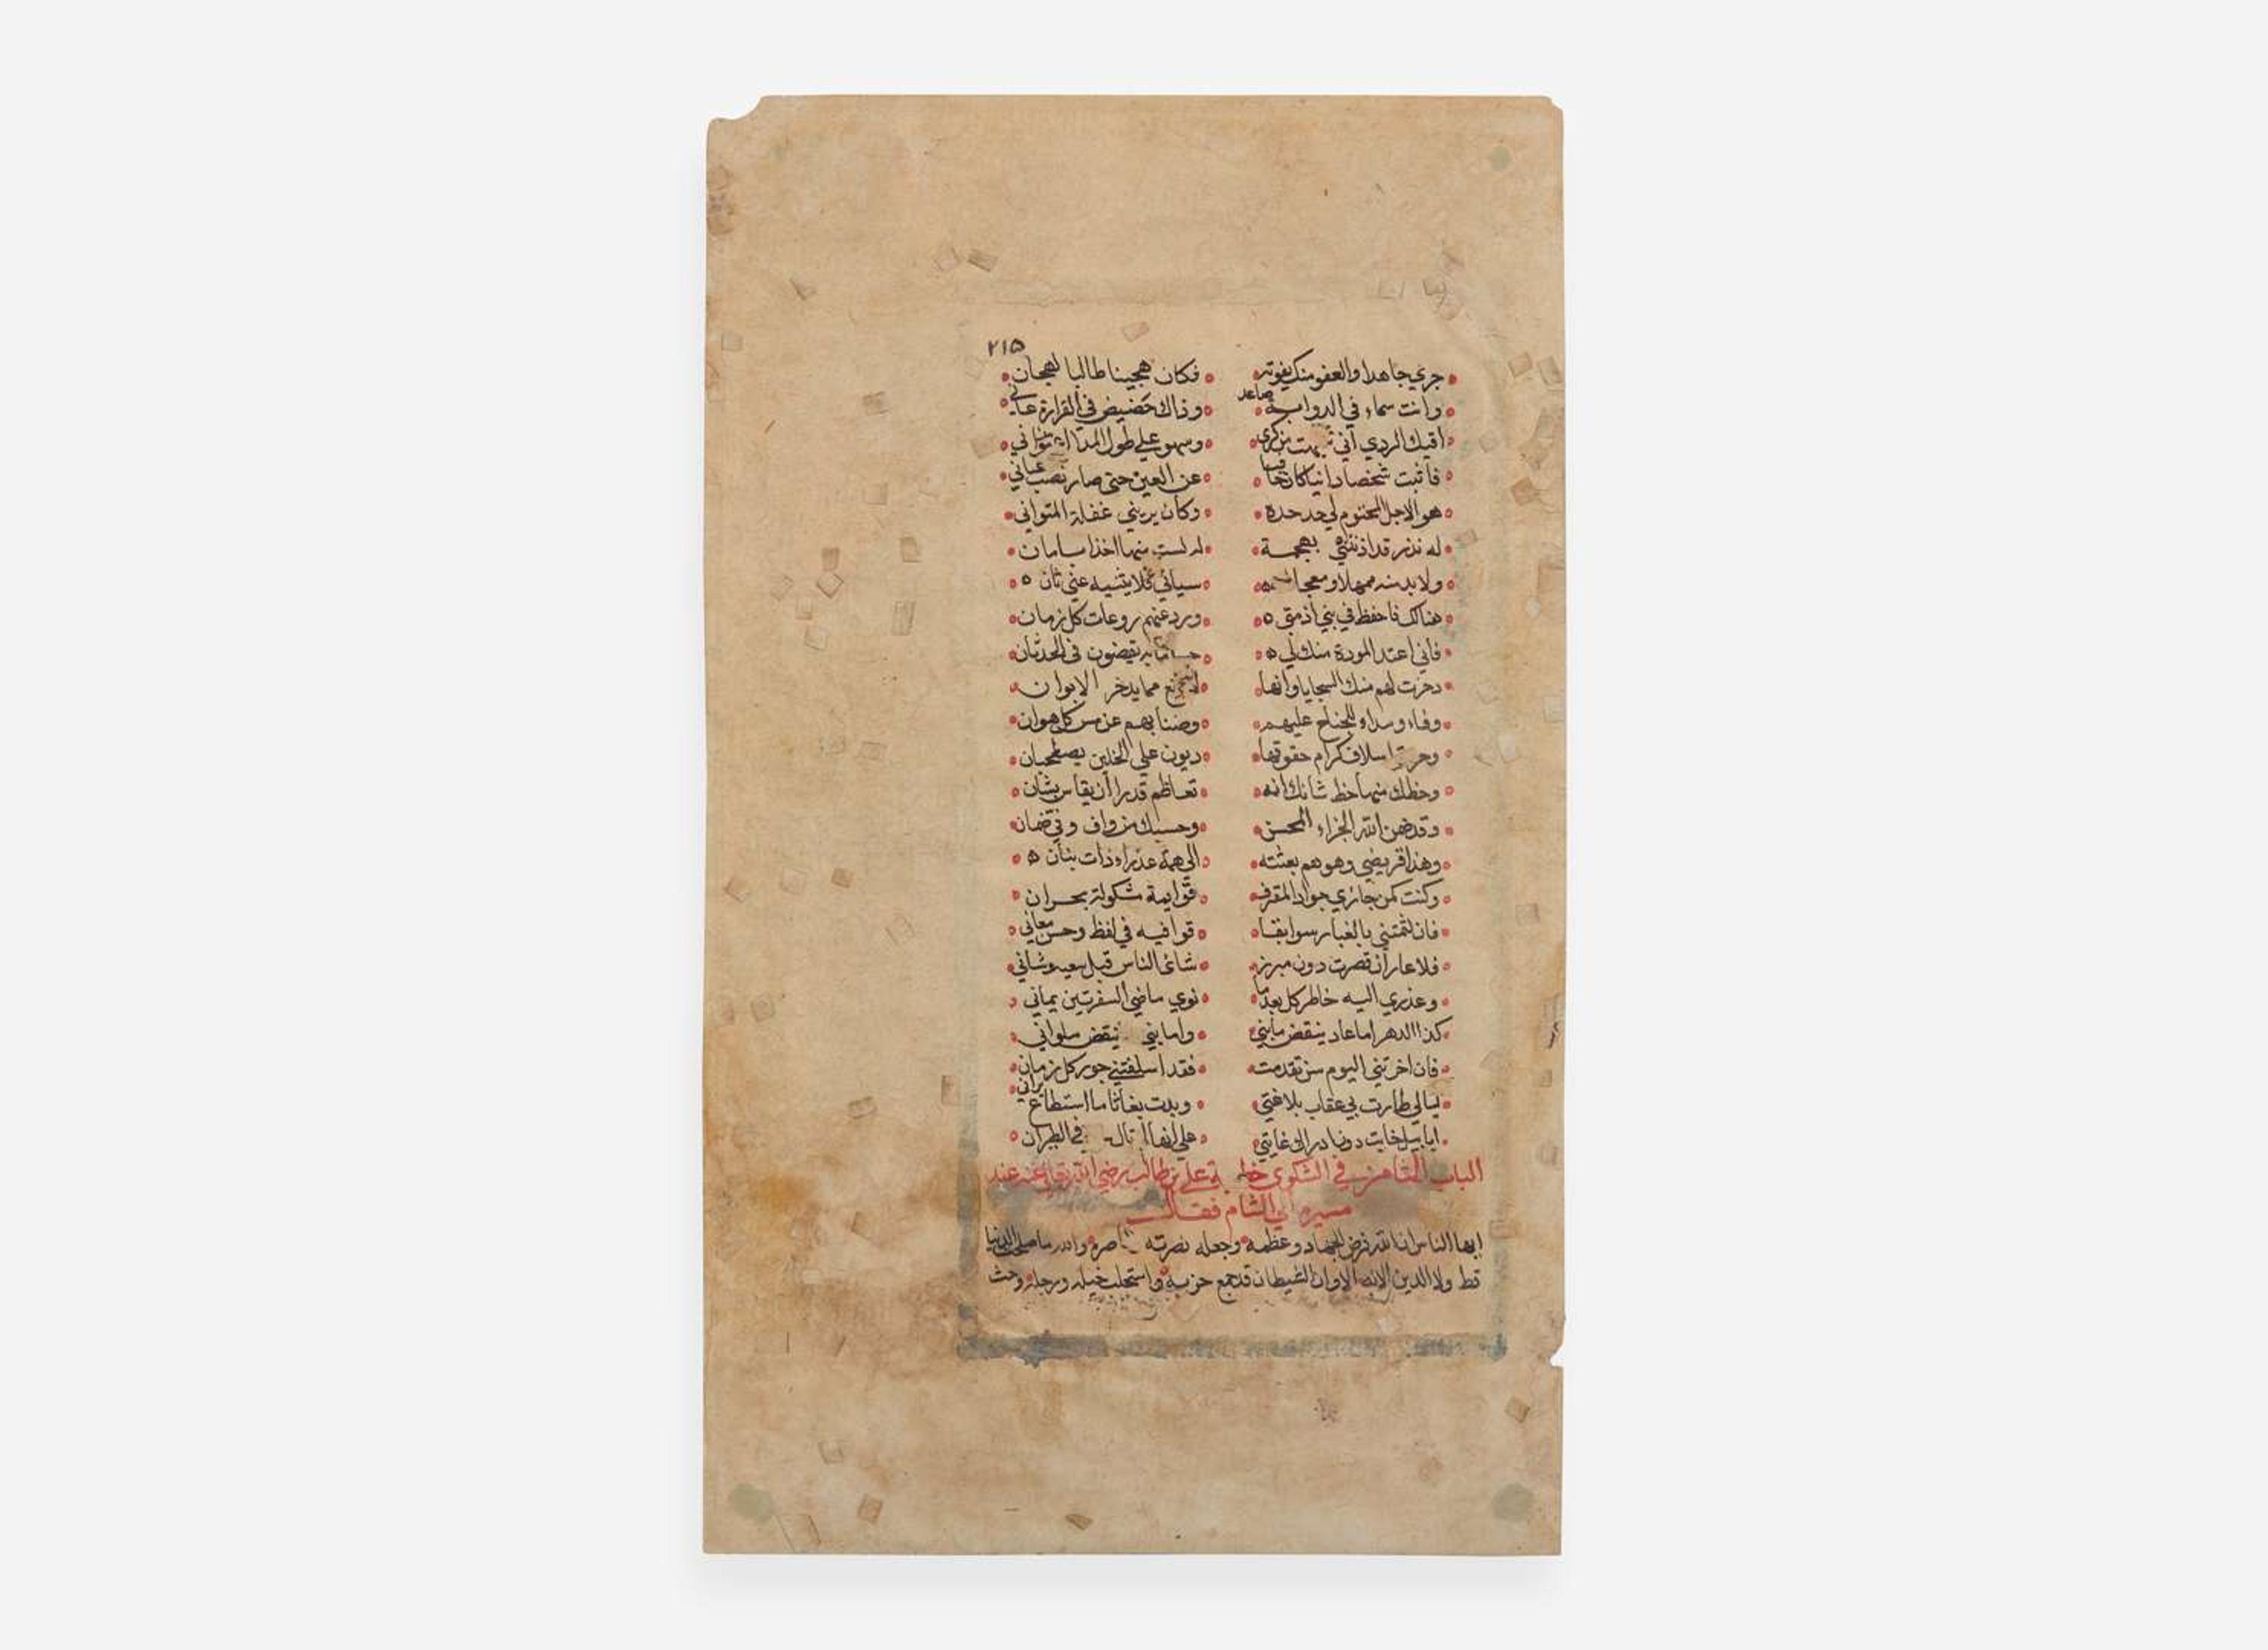 ٢١٥
جري جاهدا والعفو منك يفوته فكان هجينا طالبا لهجان
صاعد
وانت سماء في الدوابة وذاك حضيض في القرارة عاني
اقيك الردي اني من كرى وسهو علي طول المدا
فاثبت شخصا دانيا كان خافيا عن العين حتى صار نصب عياني
هو الاجل المحتوم لي جد جده وكان يريني غفلة المتواني
له نذر قد اذنتني بهجمة له لست منها اخذا بامان
ولا بد منه ممهلا او معجا سياتي فلا يثنيه عني ثان
هنالك فاحفظ في بني اذمتي ورد عنهم روعات كل زمان
فاني اعتد المودة منك لي به تقضون في الحدثان
دخرت لهم منك السجايا وانها مما يدخر الابوان
وفاء وسراء للجناح عليهم وضنا بهم عن مس كل هوان
اسلاف كرام حقوقها ديون علي الخلين يصطحبان
وحظك منها حظ شانك انه تعاظم قدرا ان يقاس بشان
وقد ضمن الله الجزاء المحسن وحسبك من واف وفي ضمان
وهذا قريضي وهو هم بعثته الي همة عذراء ذات بنان
وكنت كمن جاري جواد المقرف قوايمة شكولة بحران
فان لثمتني بالغبار سوابقا قوافيه في لفظ وحسن معاني
فلا عار ان قصرت دون مبرز شائ الناس قبل سعيه وشاني
وعذري اليه خاطر كل بعد ما نوي ماضي السفرتين يماني
كذا الدهر اما عاد ينقض ما بني واما بني ينقض ملواني
فان اخرتني اليوم سن تقدمت فقد اسلفتني جور كل زمان
ليالي طارت بي عقاب بلاغتي وبدت بغاثا ما استطاع يراني
ابابيل خابت دون ادراك غايتي علي انها في الطيران
الباب الثامن في الشكوى علي بن طالب رضي الله تعالي عنه عند
مسيره الي الشام فقال
ايها الناس ان الله فرض الجهاد وعظمه وجعله نصرته ناصره والله ما صلحت الدنيا
قط ولا الدين الا به الا وان الشيطان قد جمع حزبه واستجلب خيله ورجله وحث